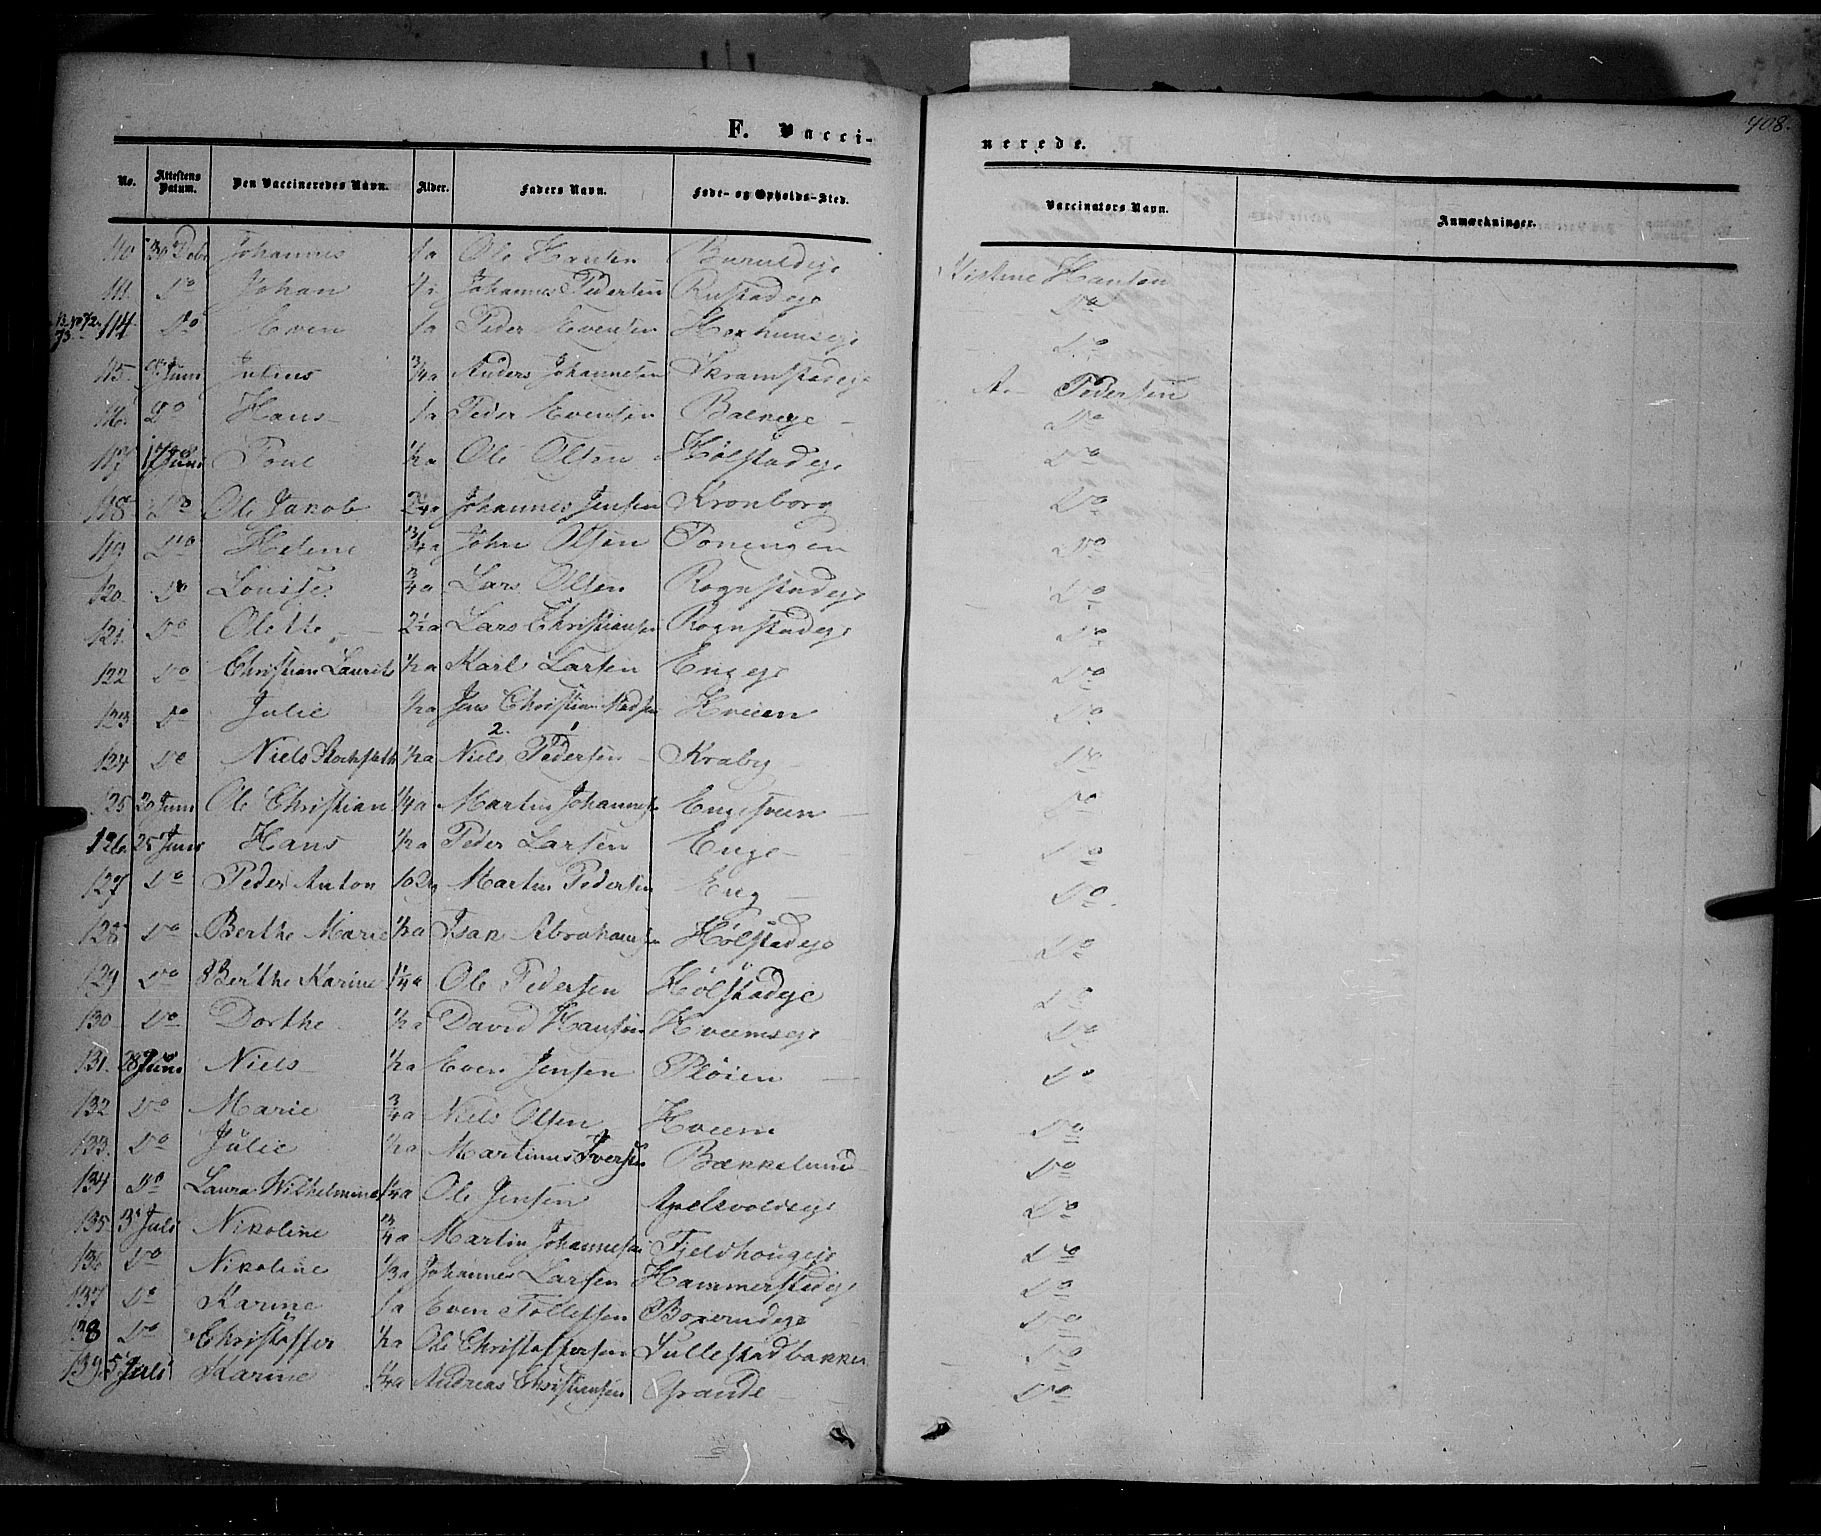 408.
F. Vacci- nerede.
No. Attestens Datum. Den Vaccineredes Navn. Alder. Faders Navn. Føde- og Opholds-Sted. Vaccinators Navn. Anmærkninger.
110 30 Johannes 1a Ole Hansen Kistine Hansen
111. Do Johan Johannes Pedersen Rustadeje Do
114 Do Even 1a Peder Evensen Do
115. Juni Julius 3/4a Anders Johannesen Skramstadeje A. Pedersen
116. Do Hans 1a Peder Evensen Balkeje Do
117 17 Juni Poul 1/2a Ole Olsen Hølstadeje Do
118 Do Ole Jakob 2 1/4a Johannes Jensen Kronborg Do
119 Do Helene 3/4a John Olsen Do
120. Do Lovisse 3/4a Lars Olsen Rognstadeje Do
121. Do Olette 2 1/2a Lars Christiansen Rognstadeje Do
122 Do Christian Laurits 1/2a Karl Larsen Engeje Do
123 Do Julie 1/2a Jens Christian Madsen Hveem Do
2. 1
124 Do Niels Stochfleth 1/2a Niels Pedersen Kraby Do
125 20 Juni Ole Christian 1/4a Martin Johannesen Engesveen Do
126. 25 Juni Hans 1/2a Peder Larsen Enge Do
127 Do Peder Anton Martin Pedersen Eng Do.
128 Do Berthe Marie 1/2a Isak Abrahamsen Hølstadeje Do
129 Do Berthe Karine 1/4a Ole Pedersen Hølstadeje Do
130 Do Dorthe 1/2a David Hansen Hveemseje Do
131. 28 Juni Niels 1/2a Even Jensen Pløien Do
132 Do Marie 3/4a Niels Olsen Hveem Do
133. Do Julie 1/2a Martinus Iversen Bækkelund Do
134 Do Laura Wilhelmine 1/4a Ole Jensen Apelsvoldseje Do
135 3 Juli Nikoline 3/4a Martin Johannesen Fjeldhougeje Do
136 Do Nikoline 1/3a Johannes Larsen Hammerstadeje Do
137 Do Karine 1a Even Tollefsen Do
138 Do Christoffer 1/2a Ole Christoffersen Sullestadbakken Do
139 5 Juli Karine 1/4a Andreas Christiansen Grande Do